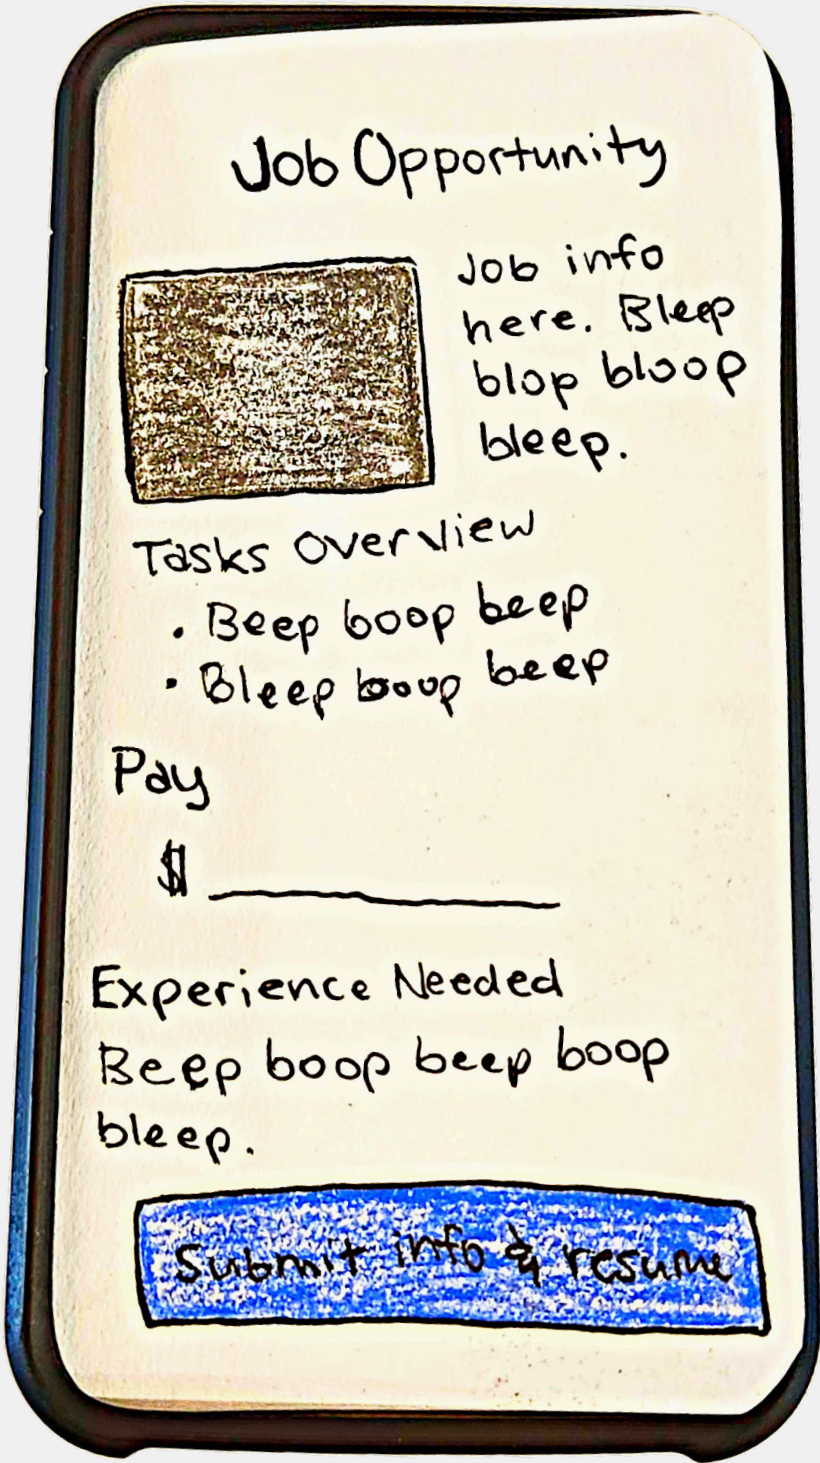 Job Opportunity
Job info
here. Bleep
blop bloop
bleep.
Tasks Overview
• Beep boop beep
• Bleep boop beep
Pay
$
Experience Needed
Beep boop beep boop
bleep.
Submit info & resume